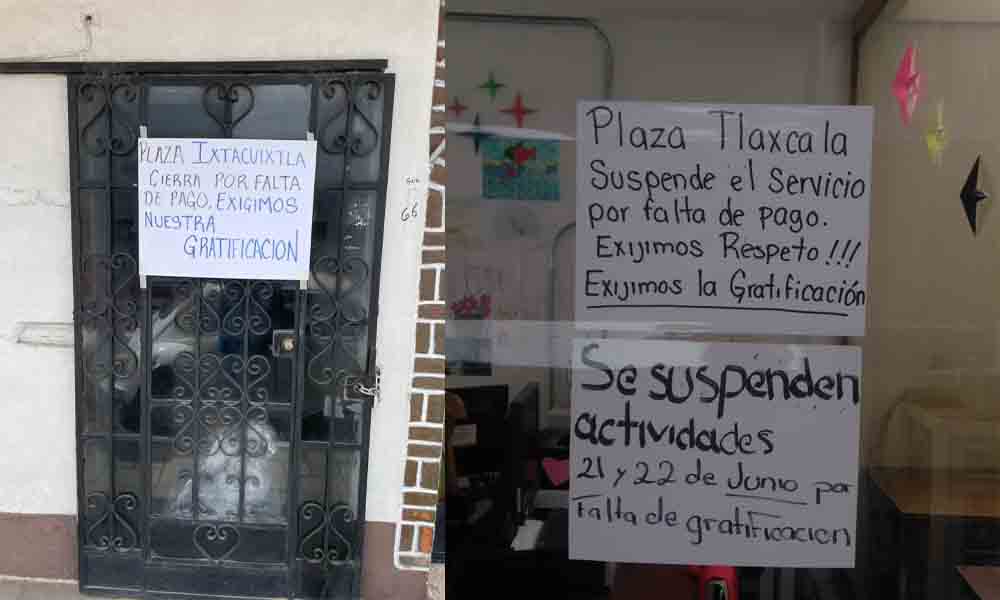 PLAZA IXTACUIXTLA
CIERRA POR FALTA
DE PAGO, EXIGIMOS
NUESTRA
GRATIFICACION
66
Plaza Tlaxcala
Suspende el Servicio
por falta de pago.
Exijimos Respeto!!!
Exijimos la Gratificación
Se suspenden
actividades
21 y 22 de Junio por
Falta de gratificacion